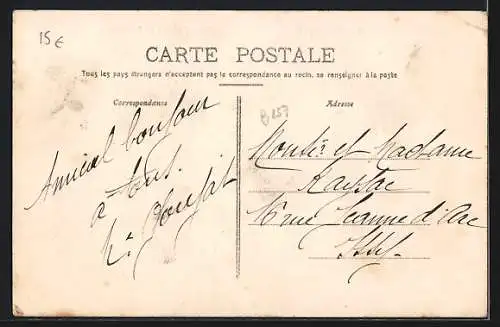 15€
CARTE POSTALE
Tous les pays étrangers n'acceptent pas la correspondance au recto, se renseigner à la poste
Correspondance
Adresse
B257
Amical bonjour
à tous.
Monsr et Madame
16 rue Jeanne d'Arc
Issy.